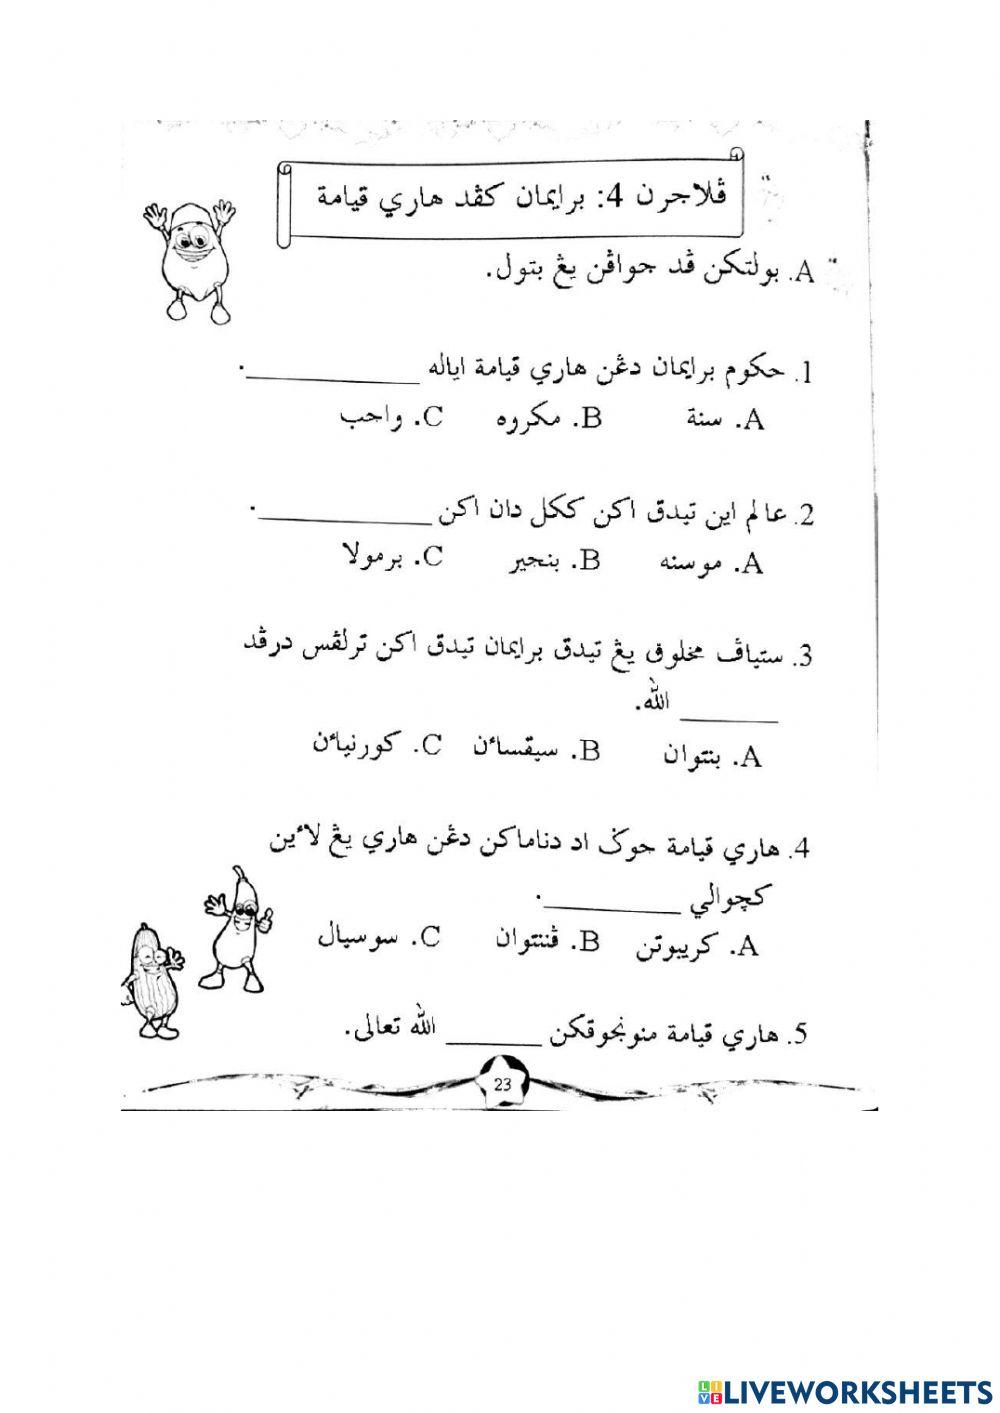 ڤلاجرن 4: برايمان کڤد هاري قيامة
A. بولتکن ڤد جواڤن يڠ بتول.
1. حکوم برايمان دڠن هاري قيامة اياله ____________.
A. سنة B. مکروه C. واجب
2. عالم اين تيدق اکن ککل دان اکن ____________.
A. موسنه B. بنجير C. برمولا
3. ستياڤ مخلوق يڠ تيدق برايمان تيدق اکن ترلڤس درڤد
_______ الله.
A. بنتوان B. سيقساءن C. کورنياءن
4. هاري قيامة جوݢ اد دناماکن دڠن هاري يڠ لاءين
کچوالي __________.
A. کريبوتن B. ڤننتوان C. سوسيال
5. هاري قيامة منونجوقکن _______ الله تعالى.
23
LIVEWORKSHEETS